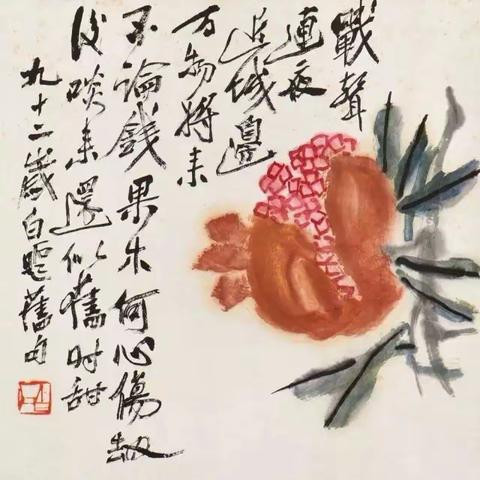 戰聲
連夜
近城邊
万物将来
不論錢果木何心傷劫
後啖来還似舊時甜
九十二歲白 舊句